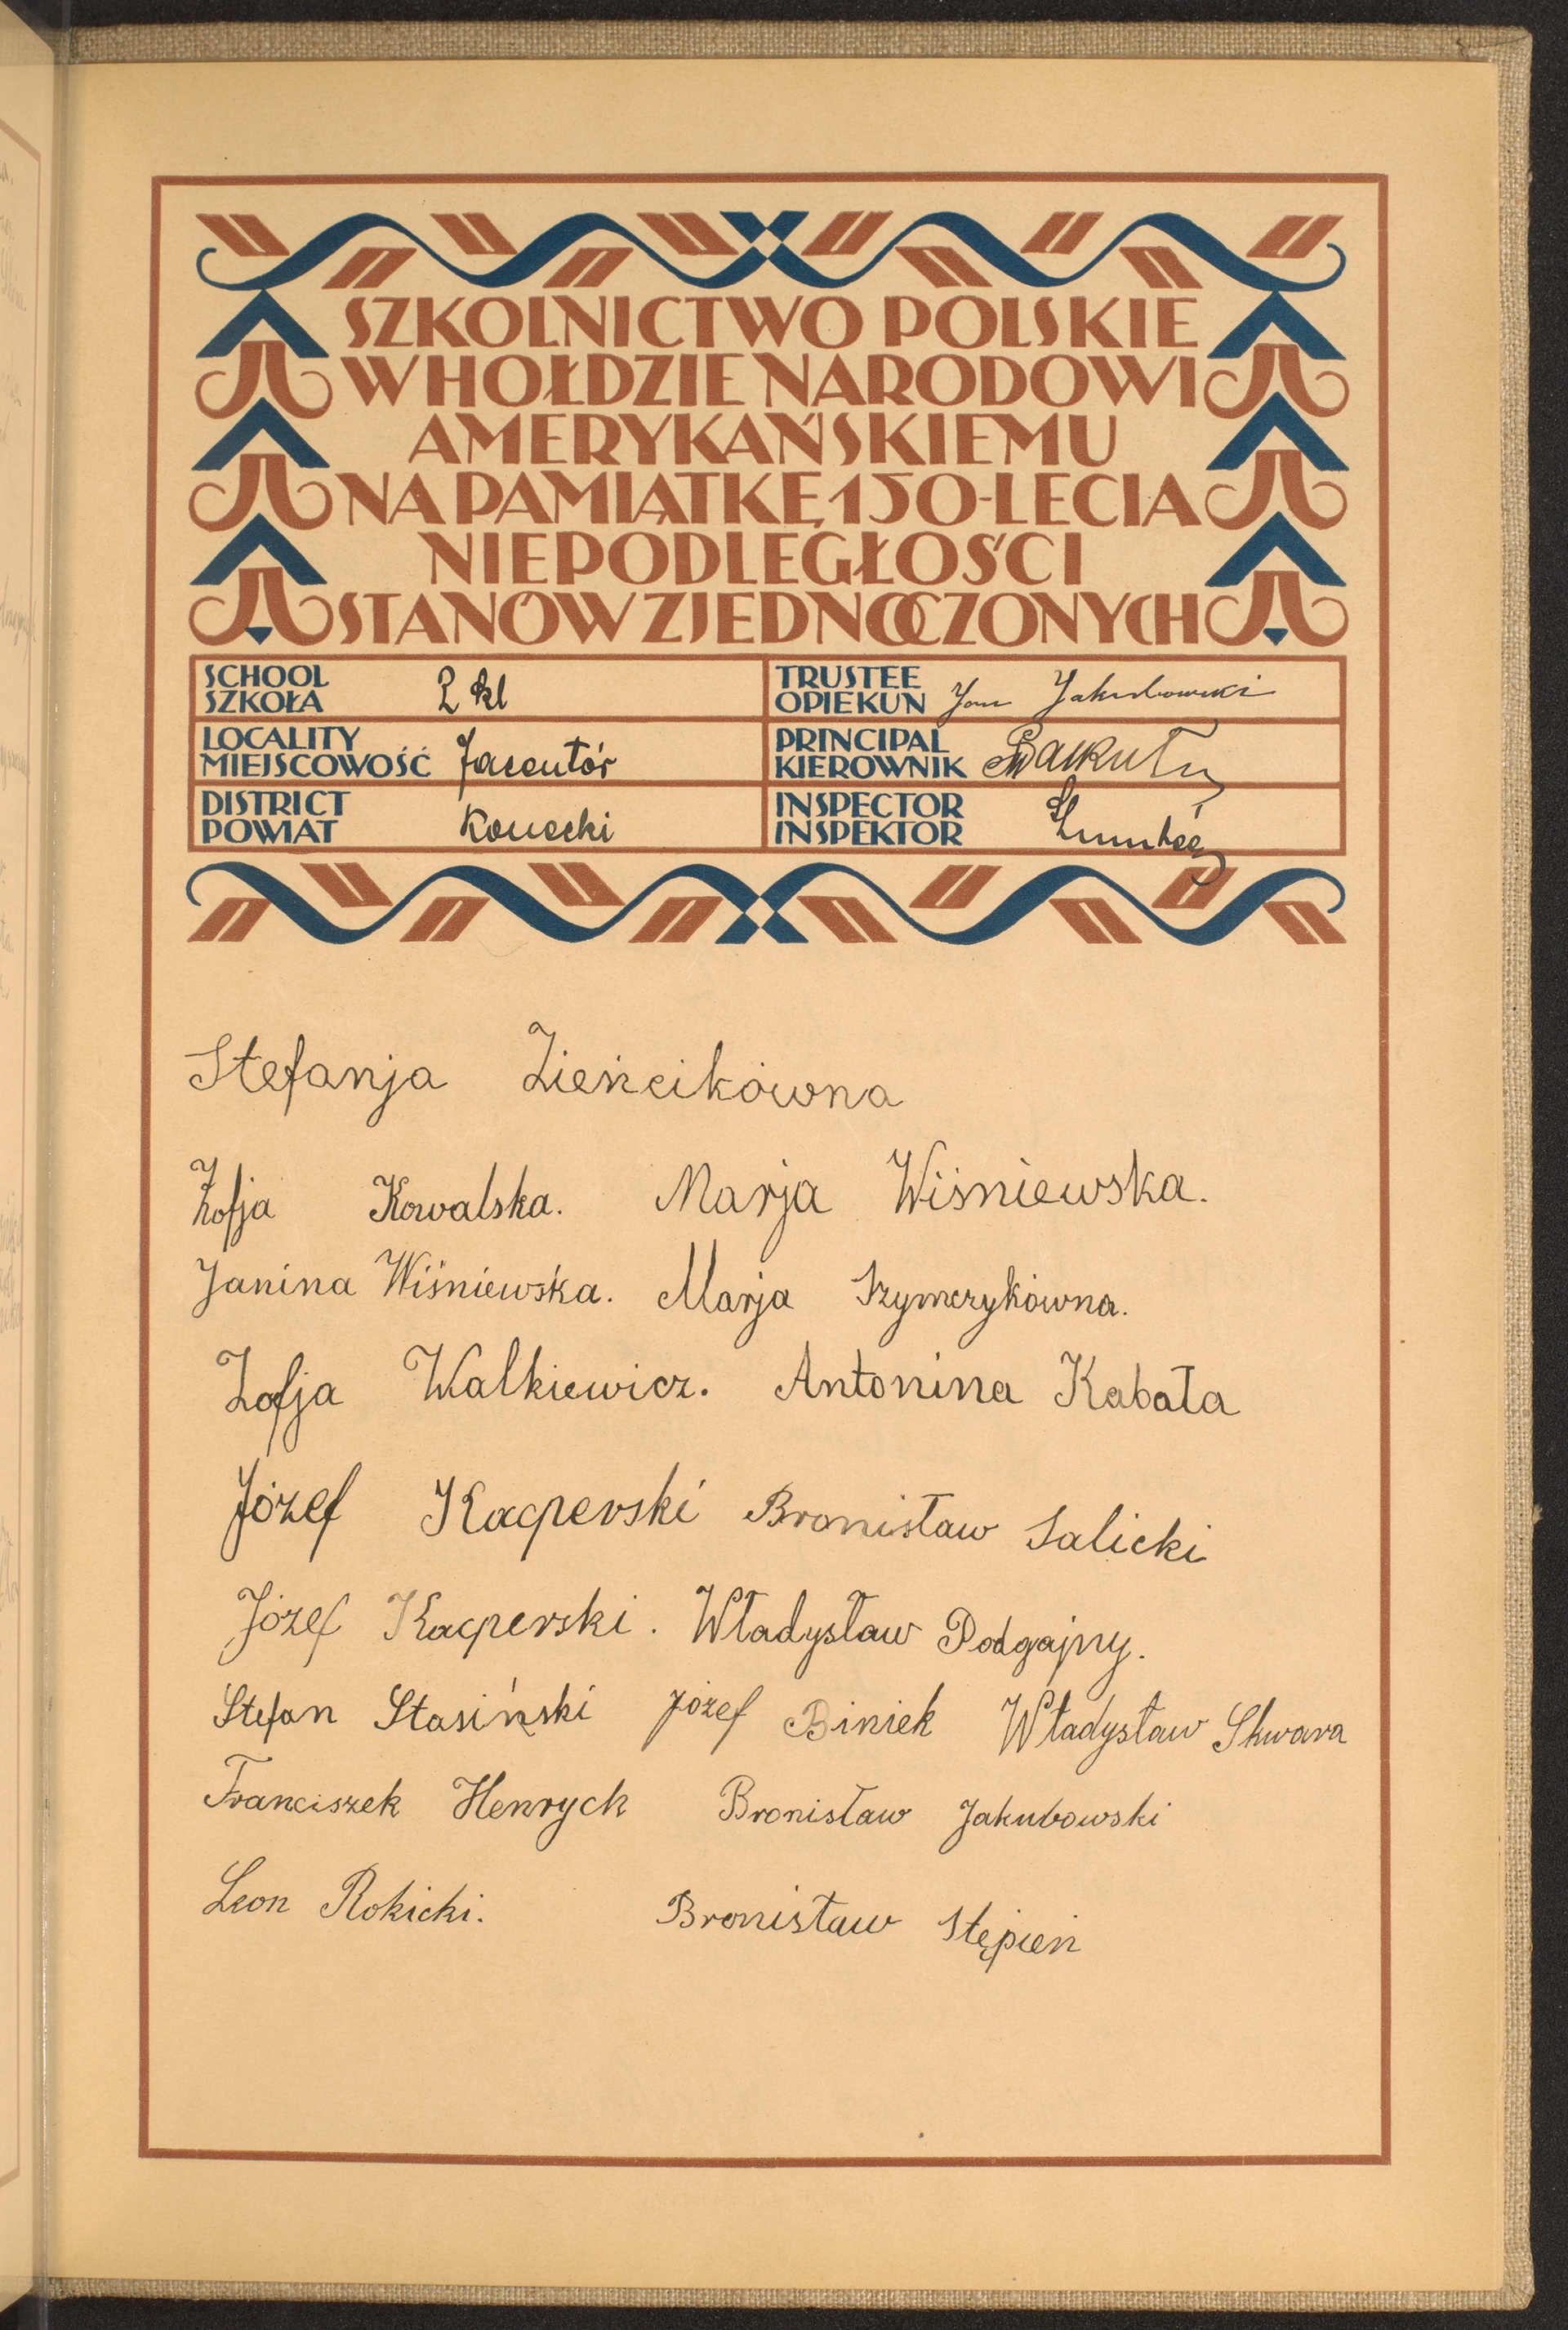 SZKOLNICTWO POLSKIE
W HOŁDZIE NARODOWI
AMERYKAŃSKIEMU
NA PAMIĄTKĘ 150-LECIA
NIEPODLEGŁOŚCI
STANÓW ZJEDNOCZONYCH
SCHOOL
SZKOŁA 2 kl
LOCALITY
MIEJSCOWOŚĆ Jacentów
DISTRICT
POWIAT Konecki
TRUSTEE
OPIEKUN Jan Jakubowski
PRINCIPAL
KIEROWNIK
INSPECTOR
INSPEKTOR
Stefanja Zieńcikówna
Zofja Kowalska. Marja Wiśniewska.
Janina Wiśniewska. Marja Szymczykówna.
Zofja Walkiewicz. Antonina Kabała
Józef Kacperski Bronisław Salicki
Józef Kacperski. Władysław Podgajny.
Stefan Stasiński Józef Biniek Władysław Skwara
Franciszek Henrych Bronisław Jakubowski
Leon Rokicki. Bronisław Stępień